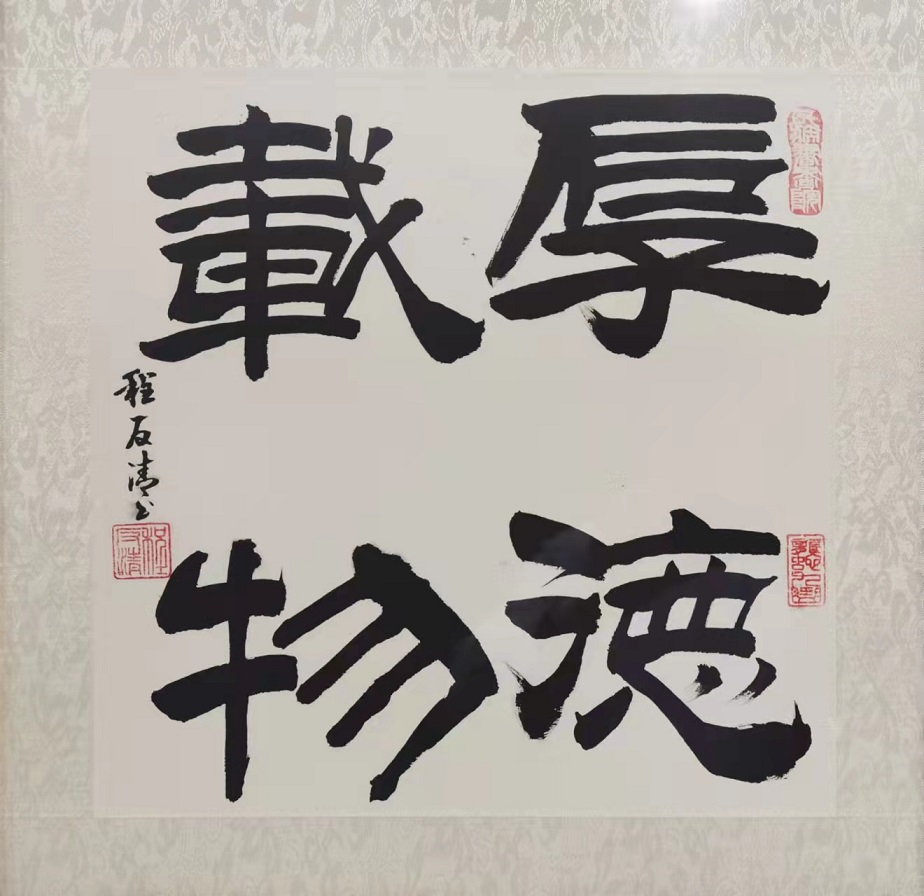 厚德
載物
程友清书
程友清